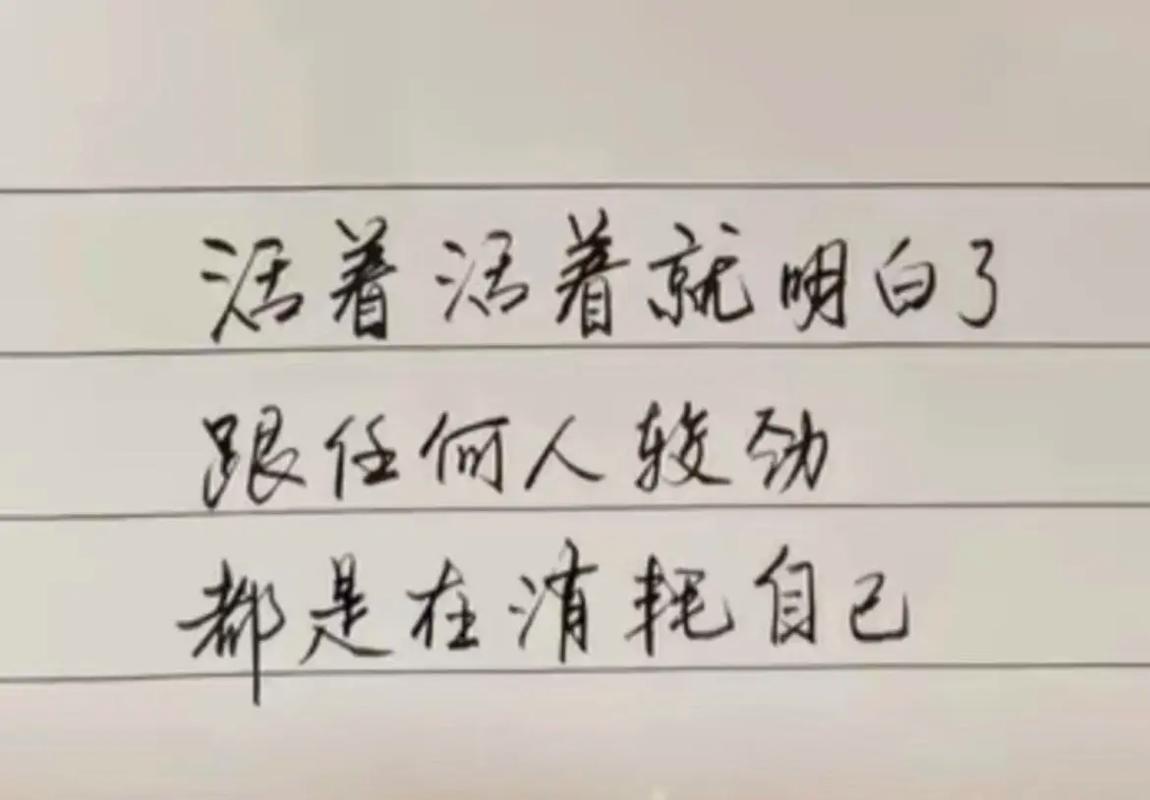 活着活着就明白了
跟任何人较劲
都是在消耗自己